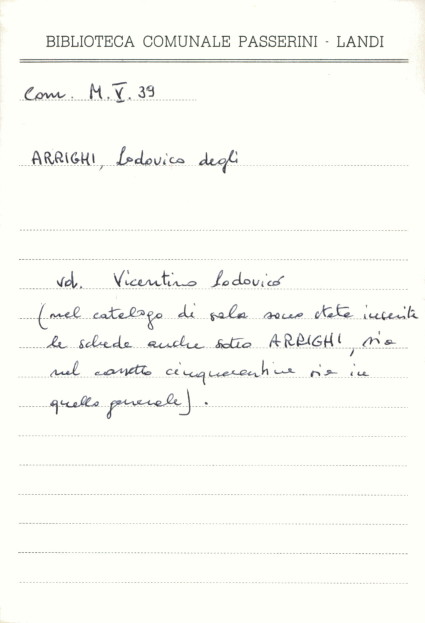 BIBLIOTECA COMUNALE PASSERINI - LANDI
Com. M.V.39
ARRIGHI, Lodovico degli
vd. Vicentino Lodovico
(nel catalogo di sala sono state inserite
le schede anche sotto ARRIGHI, sia
nel cassetto cinquecentine sia in
quello generale).